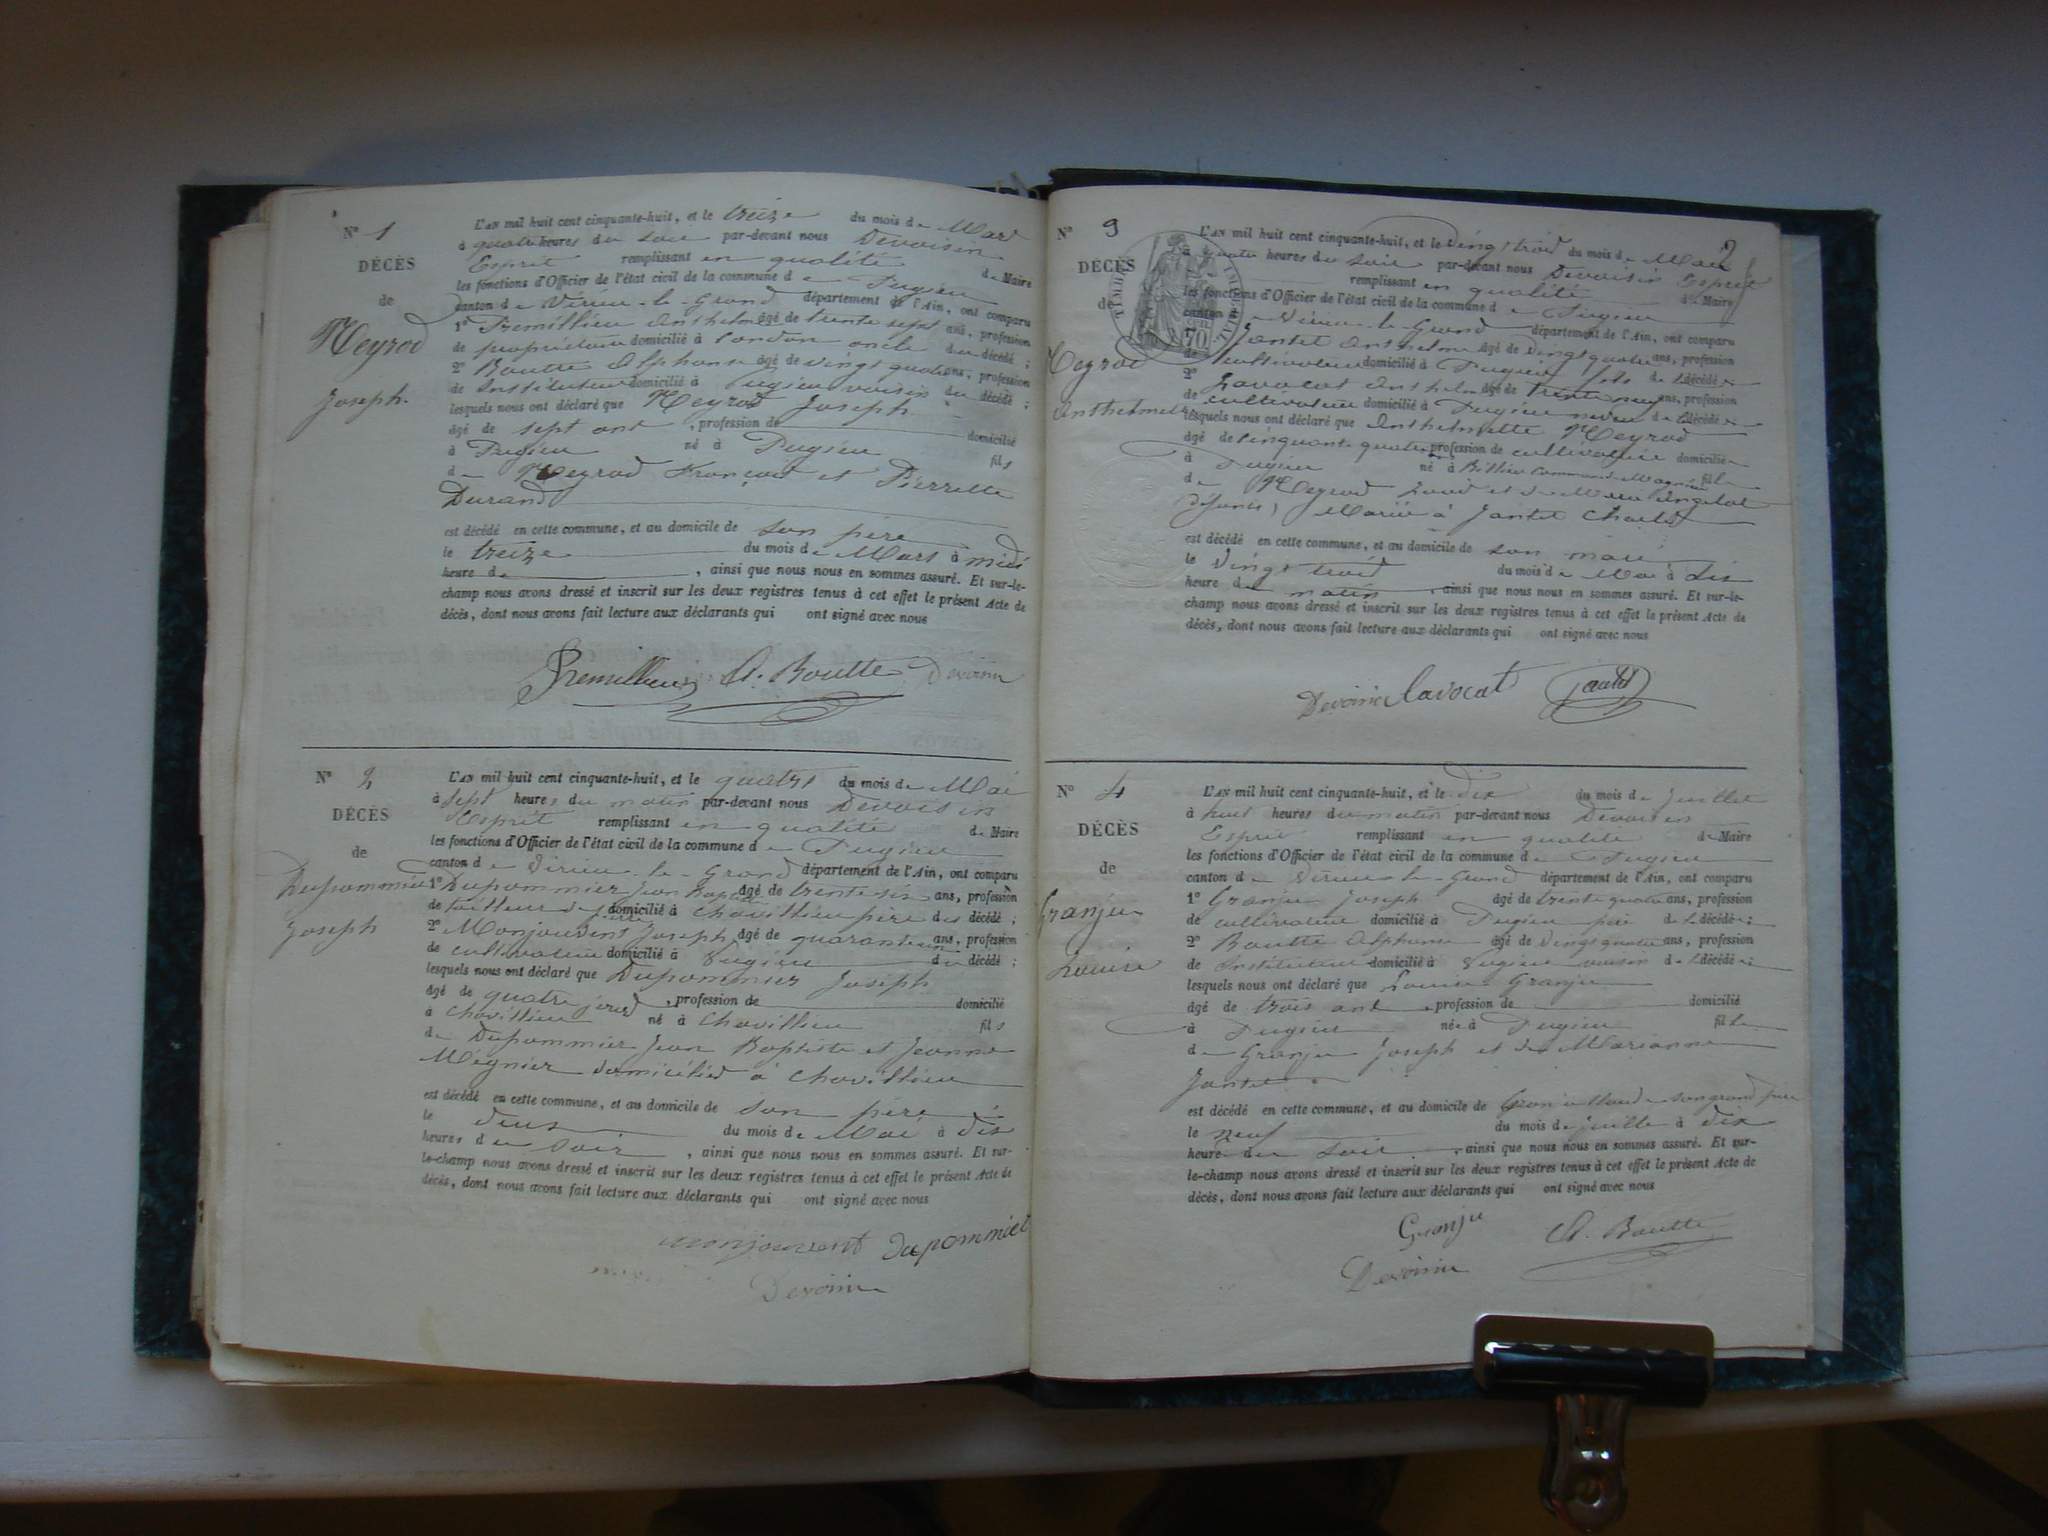 N° 1
DÉCÈS
de
Meyrod
Joseph.
L'AN mil huit cent cinquante-huit, et le treize du mois de Mars
à quatre heures du soir par-devant nous Devoisin
Esprit remplissant en qualité de Maire
les fonctions d'Officier de l'état civil de la commune de Pugieu
canton de Virieu-le-Grand département de l'Ain, ont comparu
1° Premillieu Anthelme âgé de trente sept ans, profession
de propriétaire domicilié à London oncle du décédé ;
2° Boutte Alphonse âgé de vingt quatre ans, profession
de Instituteur domicilié à Pugieu voisin du décédé ;
lesquels nous ont déclaré que Meyrod Joseph
âgé de sept ans , profession de domicilié
à Pugieu né à Pugieu fils
de Meyrod François et Pierrette
Durand
est décédé en cette commune, et au domicile de son père
le treize du mois de Mars à midi
heure d , ainsi que nous nous en sommes assuré. Et sur-le-
champ nous avons dressé et inscrit sur les deux registres tenus à cet effet le présent Acte de
décès, dont nous avons fait lecture aux déclarants qui ont signé avec nous
Premillieu A. Boutte Devoisin
N° 2
DÉCÈS
de
Dupommier
Joseph
L'AN mil huit cent cinquante-huit, et le quatre du mois de Mai
à sept heures du matin par-devant nous Devoisin
Esprit remplissant en qualité de Maire
les fonctions d'Officier de l'état civil de la commune de Pugieu
canton de Virieu-le-Grand département de l'Ain, ont comparu
1° Dupommier Jean Baptiste âgé de trente six ans, profession
de tailleur de pierre domicilié à Chavillieu père du décédé ;
2° Monjouvent Joseph âgé de quarante un ans, profession
de cultivateur domicilié à Pugieu du décédé ;
lesquels nous ont déclaré que Dupommier Joseph
âgé de quatre jours , profession de domicilié
à Chavillieu né à Chavillieu fils
de Dupommier Jean Baptiste et Jeanne
Mégnier domiciliés à Chavillieu
est décédé en cette commune, et au domicile de son père
le deux du mois de Mai à dix
heures du soir , ainsi que nous nous en sommes assuré. Et sur-
le-champ nous avons dressé et inscrit sur les deux registres tenus à cet effet le présent Acte de
décès, dont nous avons fait lecture aux déclarants qui ont signé avec nous
monjouvent Dupommier
Devoisin
2
N° 3
DÉCÈS
de
Meyrod
Anthelmette
TIMBRE IMPÉRIAL
70
L'AN mil huit cent cinquante-huit, et le vingt trois du mois de Mai
à quatre heures du soir par-devant nous Devoisin Esprit
remplissant en qualité de Maire
les fonctions d'Officier de l'état civil de la commune de Pugieu
canton de Virieu-le-Grand département de l'Ain, ont comparu
1° Jantet Anthelme âgé de vingt quatre ans, profession
de cultivateur domicilié à Pugieu fils de l décédée
2° Lavocat Anthelme âgé de trente neuf ans, profession
de cultivateur domicilié à Pugieu neveu de l décédée
lesquels nous ont déclaré que Anthelmette Meyrod
âgé de cinquante quatre profession de cultivatrice domiciliée
à Pugieu né à Billieu commune Magnieu fille
de Meyrod Louis et de Angelot
défunts, Mariée à Jantet Charles
est décédé en cette commune, et au domicile de son mari
le vingt trois du mois de Mai à dix
heure du matin , ainsi que nous nous en sommes assuré. Et sur-le-
champ nous avons dressé et inscrit sur les deux registres tenus à cet effet le présent Acte de
décès, dont nous avons fait lecture aux déclarants qui ont signé avec nous
Devoisin Lavocat jantet
N° 4
DÉCÈS
de
Granju
Louise
L'AN mil huit cent cinquante-huit, et le dix du mois de juillet
à huit heures du matin par-devant nous Devoisin
Esprit remplissant en qualité de Maire
les fonctions d'Officier de l'état civil de la commune de Pugieu
canton de Virieu-le-Grand département de l'Ain, ont comparu
1° Granju Joseph âgé de trente quatre ans, profession
de cultivateur domicilié à Pugieu père de l décédée ;
2° Boutte Alphonse âgé de vingt quatre ans, profession
de Instituteur domicilié à Pugieu voisin de l décédée ;
lesquels nous ont déclaré que Louise Granju
âgé de trois ans , profession de domicilié
à Pugieu née à Pugieu fille
de Granju Joseph et de Marianne
Jantet
est décédé en cette commune, et au domicile de Granju Claude son grand père
le neuf du mois de juillet à dix
heure du soir , ainsi que nous nous en sommes assuré. Et sur-
le-champ nous avons dressé et inscrit sur les deux registres tenus à cet effet le présent Acte de
décès, dont nous avons fait lecture aux déclarants qui ont signé avec nous
Granju A. Boutte
Devoisin